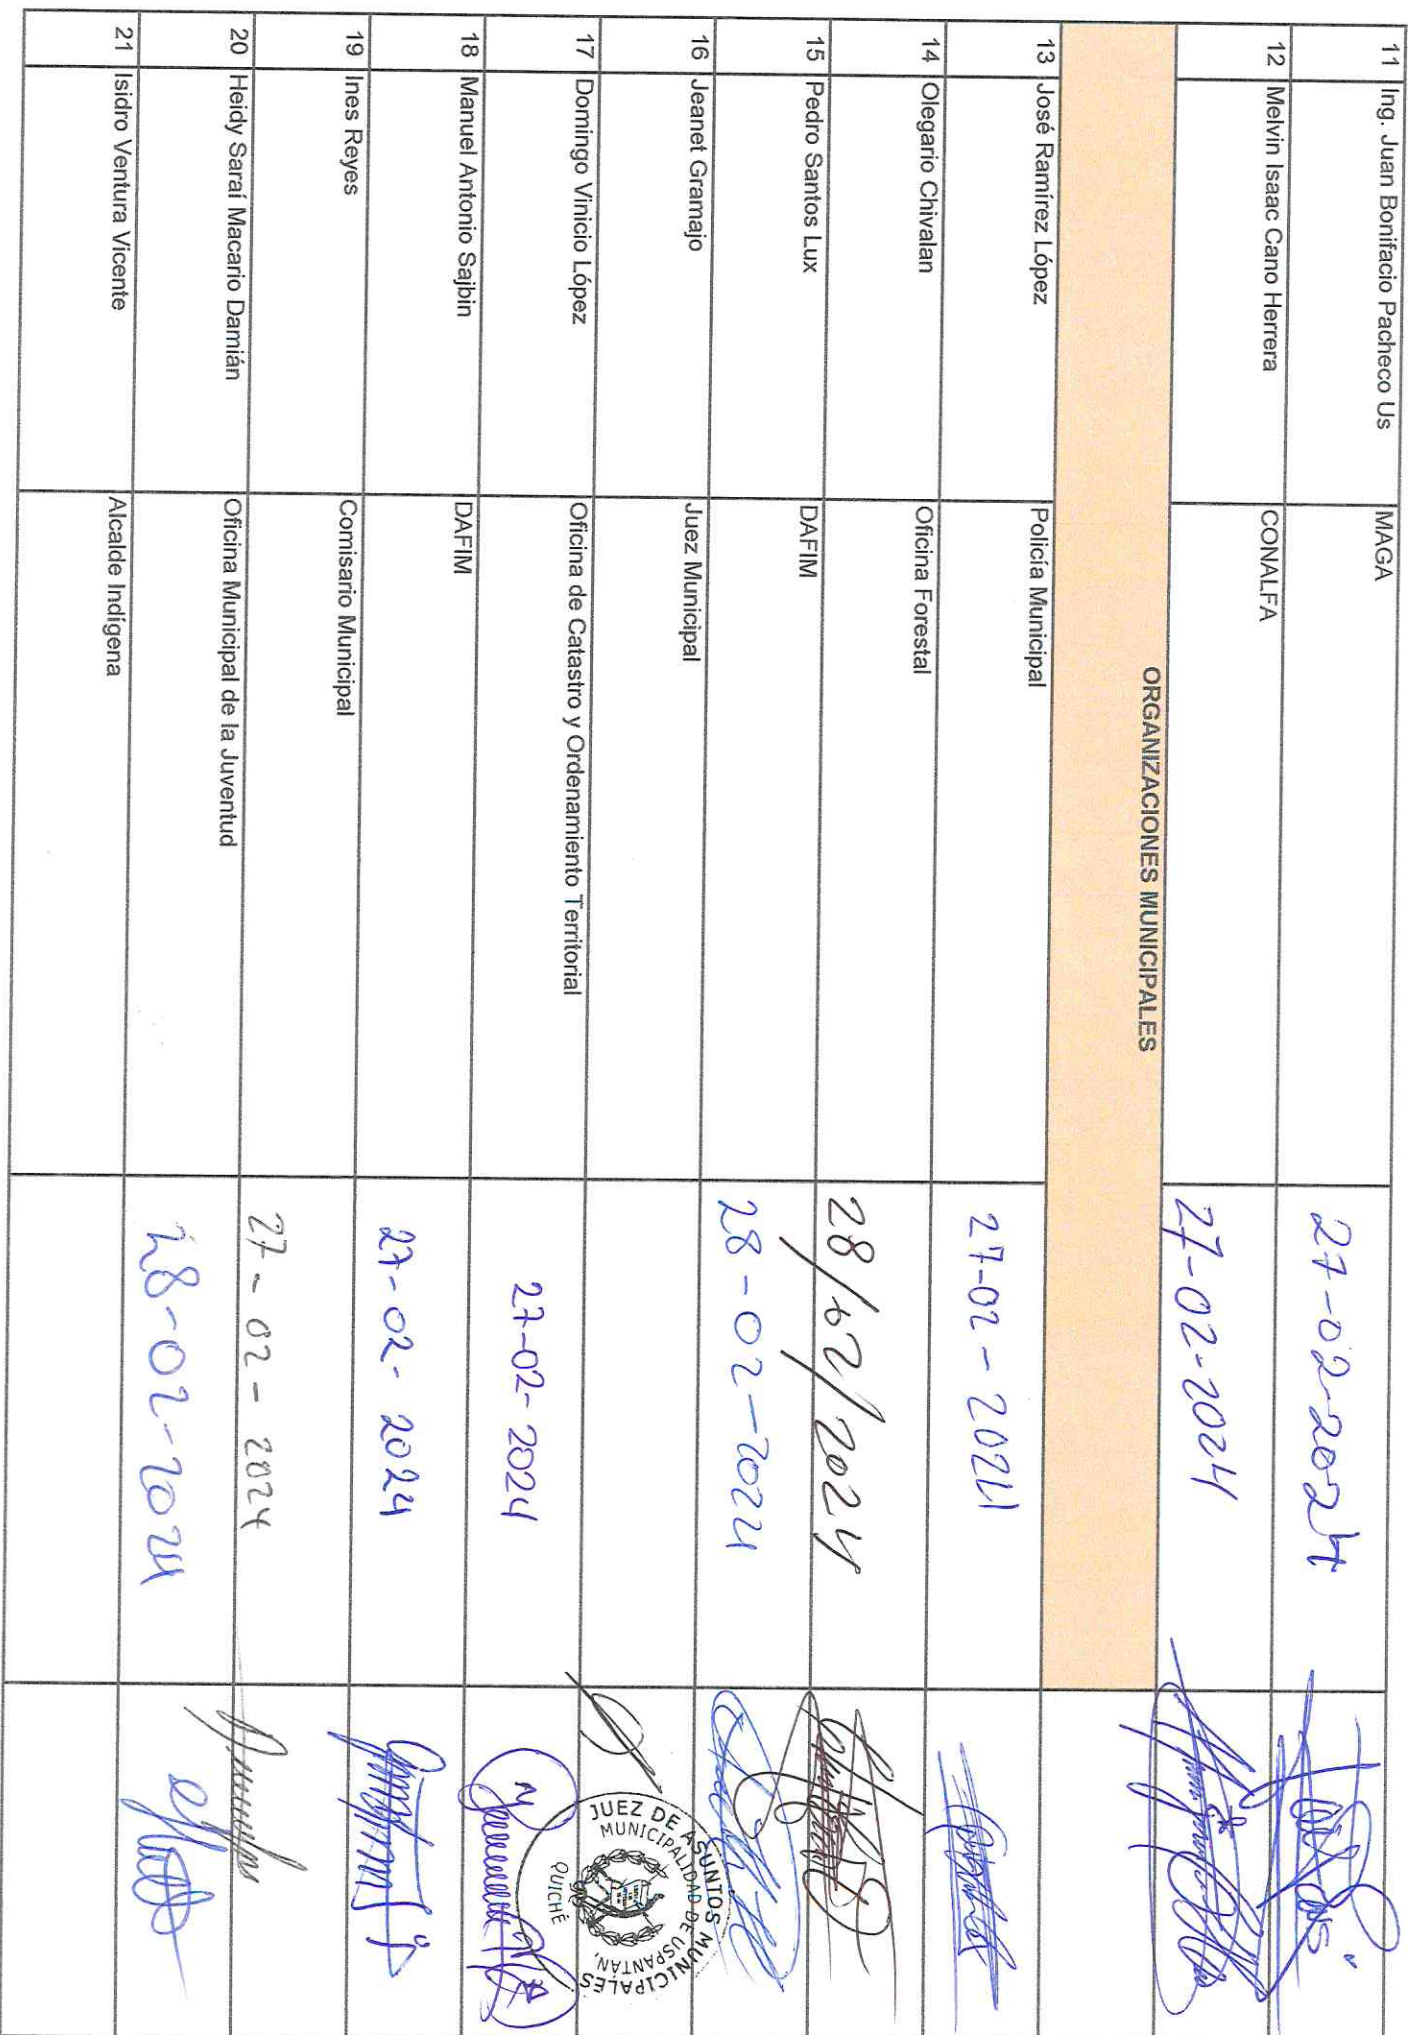 11 Ing. Juan Bonifacio Pacheco Us MAGA 27-02-2024
12 Melvin Isaac Cano Herrera CONALFA 27-02-2024
ORGANIZACIONES MUNICIPALES
13 José Ramírez López Policía Municipal 27-02-2024
14 Olegario Chivalan Oficina Forestal 28/02/2024
15 Pedro Santos Lux DAFIM 28-02-2024
16 Jeanet Gramajo Juez Municipal
JUEZ DE ASUNTOS MUNICIPALES
MUNICIPALIDAD DE USPANTAN,
QUICHÉ
17 Domingo Vinicio López Oficina de Catastro y Ordenamiento Territorial 27-02-2024
18 Manuel Antonio Sajbin DAFIM 27-02-2024
19 Ines Reyes Comisario Municipal 27-02-2024
20 Heidy Saraí Macario Damián Oficina Municipal de la Juventud 28-02-2024
21 Isidro Ventura Vicente Alcalde Indígena